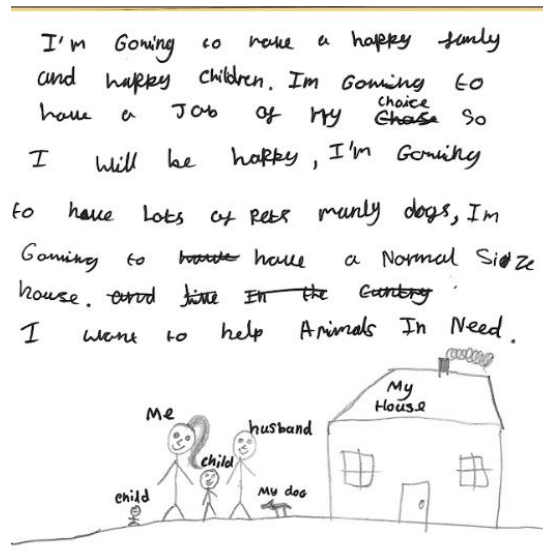 I'm Goning to have a happy famly
and happy children. Im Goming to
have a Job of My choice So
I will be happy, I'm Goming
to have Lots of Pets manly dogs, Im
Goming to have a Normal Sidze
house.
I want to help Animals In Need.
My
House
Me
husband
child
child
My dog